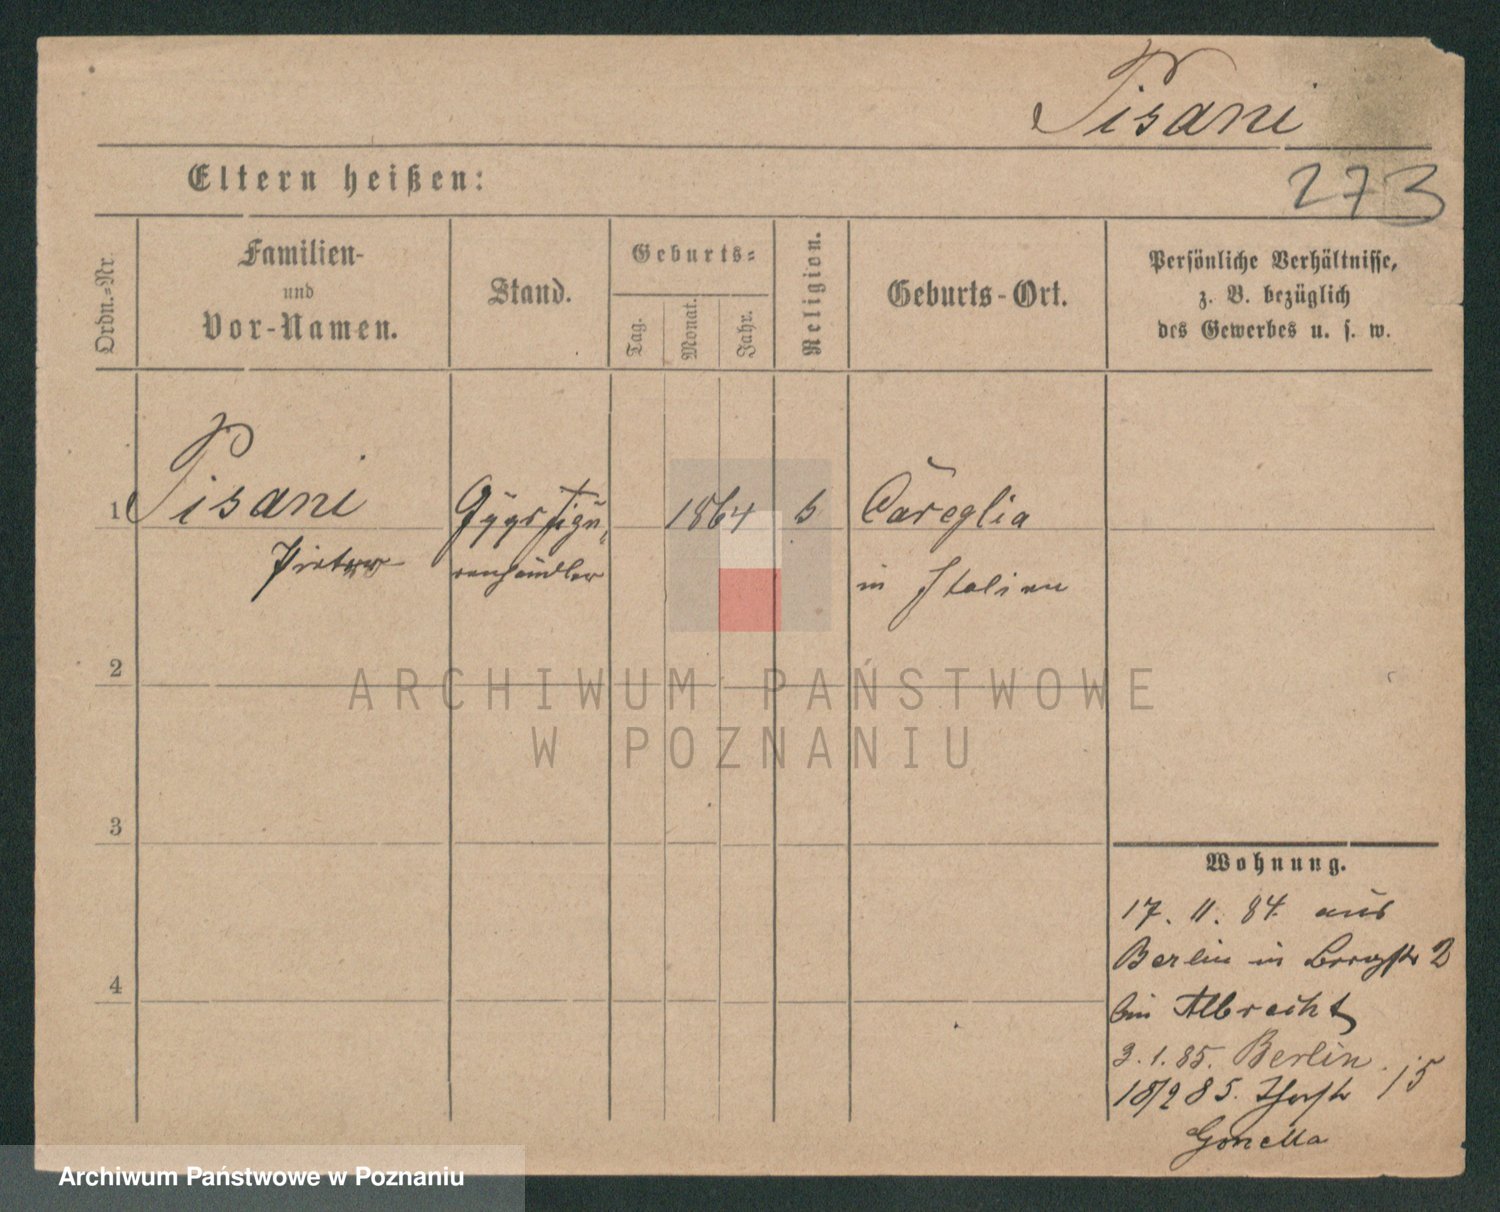 Pisani
273
Eltern heißen:
Ordn.-Nr.
Familien-
und
Vor-Namen.
Stand.
Geburts-
Tag.
Monat.
Jahr.
Religion.
Geburts-Ort.
Persönliche Verhältnisse,
z. B. bezüglich
des Gewerbes u. s. w.
1 Pisani
1864
Careglia
in Italien
2
3
4
Wohnung.
17. 11. 84. aus
Berlin in 2
bei Albrecht
3. 1. 85. Berlin
18/2 85. 15
Gonella
ARCHIWUM PAŃSTWOWE
W POZNANIU
Archiwum Państwowe w Poznaniu